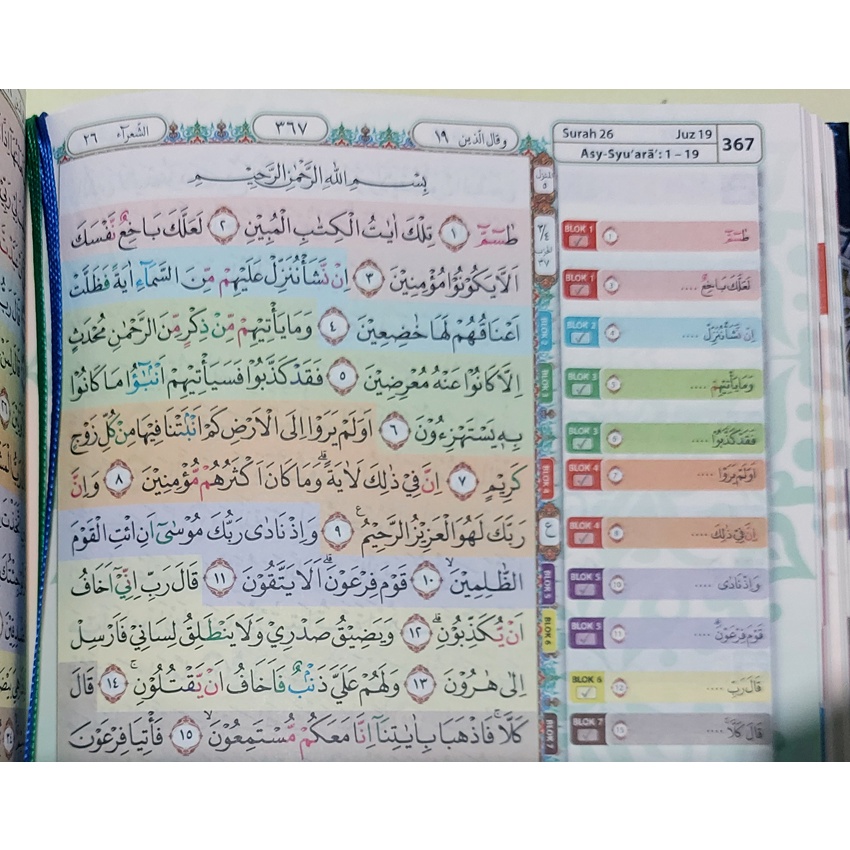 الشعراء ٢٦
٣٦٧
وقال الذين ١٩
Surah 26 Juz 19
Asy-Syu'arā': 1 – 19
367
بِسْمِ اللّٰهِ الرَّحْمٰنِ الرَّحِيْمِ
طٰسۤمّۤ ١ تِلْكَ اٰيٰتُ الْكِتٰبِ الْمُبِيْنِ ٢ لَعَلَّكَ بَاخِعٌ نَّفْسَكَ
اَلَّا يَكُوْنُوْا مُؤْمِنِيْنَ ٣ اِنْ نَّشَأْ نُنَزِّلْ عَلَيْهِمْ مِّنَ السَّمَاۤءِ اٰيَةً فَظَلَّتْ
اَعْنَاقُهُمْ لَهَا خٰضِعِيْنَ ٤ وَمَا يَأْتِيْهِمْ مِّنْ ذِكْرٍ مِّنَ الرَّحْمٰنِ مُحْدَثٍ
اِلَّا كَانُوْا عَنْهُ مُعْرِضِيْنَ ٥ فَقَدْ كَذَّبُوْا فَسَيَأْتِيْهِمْ اَنْۢبٰۤؤُا مَا كَانُوْا
بِهٖ يَسْتَهْزِءُوْنَ ٦ اَوَلَمْ يَرَوْا اِلَى الْاَرْضِ كَمْ اَنْۢبَتْنَا فِيْهَا مِنْ كُلِّ زَوْجٍ
كَرِيْمٍ ٧ اِنَّ فِيْ ذٰلِكَ لَاٰيَةًۗ وَمَا كَانَ اَكْثَرُهُمْ مُّؤْمِنِيْنَ ٨ وَاِنَّ
رَبَّكَ لَهُوَ الْعَزِيْزُ الرَّحِيْمُ ࣖ ٩ وَاِذْ نَادٰى رَبُّكَ مُوْسٰٓى اَنِ ائْتِ الْقَوْمَ
الظّٰلِمِيْنَۙ ١٠ قَوْمَ فِرْعَوْنَۗ اَلَا يَتَّقُوْنَ ١١ قَالَ رَبِّ اِنِّيْٓ اَخَافُ
اَنْ يُّكَذِّبُوْنِۗ ١٢ وَيَضِيْقُ صَدْرِيْ وَلَا يَنْطَلِقُ لِسَانِيْ فَاَرْسِلْ
اِلٰى هٰرُوْنَ ١٣ وَلَهُمْ عَلَيَّ ذَنْۢبٌ فَاَخَافُ اَنْ يَّقْتُلُوْنِۚ ١٤ قَالَ
كَلَّاۚ فَاذْهَبَا بِاٰيٰتِنَآ اِنَّا مَعَكُمْ مُّسْتَمِعُوْنَۙ ١٥ فَأْتِيَا فِرْعَوْنَ
المنزل ٥
٢/٤
الحزب ٣٧
BLOK 2
BLOK 3
BLOK 4
ع
BLOK 5
BLOK 6
BLOK 7
BLOK 1 ١ طٰسۤمّۤ
BLOK 1 ٣ لَعَلَّكَ بَاخِعٌ ....
BLOK 2 ٤ اِنْ نَّشَأْ نُنَزِّلْ ....
BLOK 3 ٥ وَمَا يَأْتِيْهِمْ ....
BLOK 3 ٦ فَقَدْ كَذَّبُوْا ....
BLOK 4 ٧ اَوَلَمْ يَرَوْا ....
BLOK 4 ٨ اِنَّ فِيْ ذٰلِكَ ....
BLOK 5 ١٠ وَاِذْ نَادٰى ....
BLOK 5 ١١ قَوْمَ فِرْعَوْنَۗ ....
BLOK 6 ١٢ قَالَ رَبِّ ....
BLOK 7 ١٥ قَالَ كَلَّاۚ ....